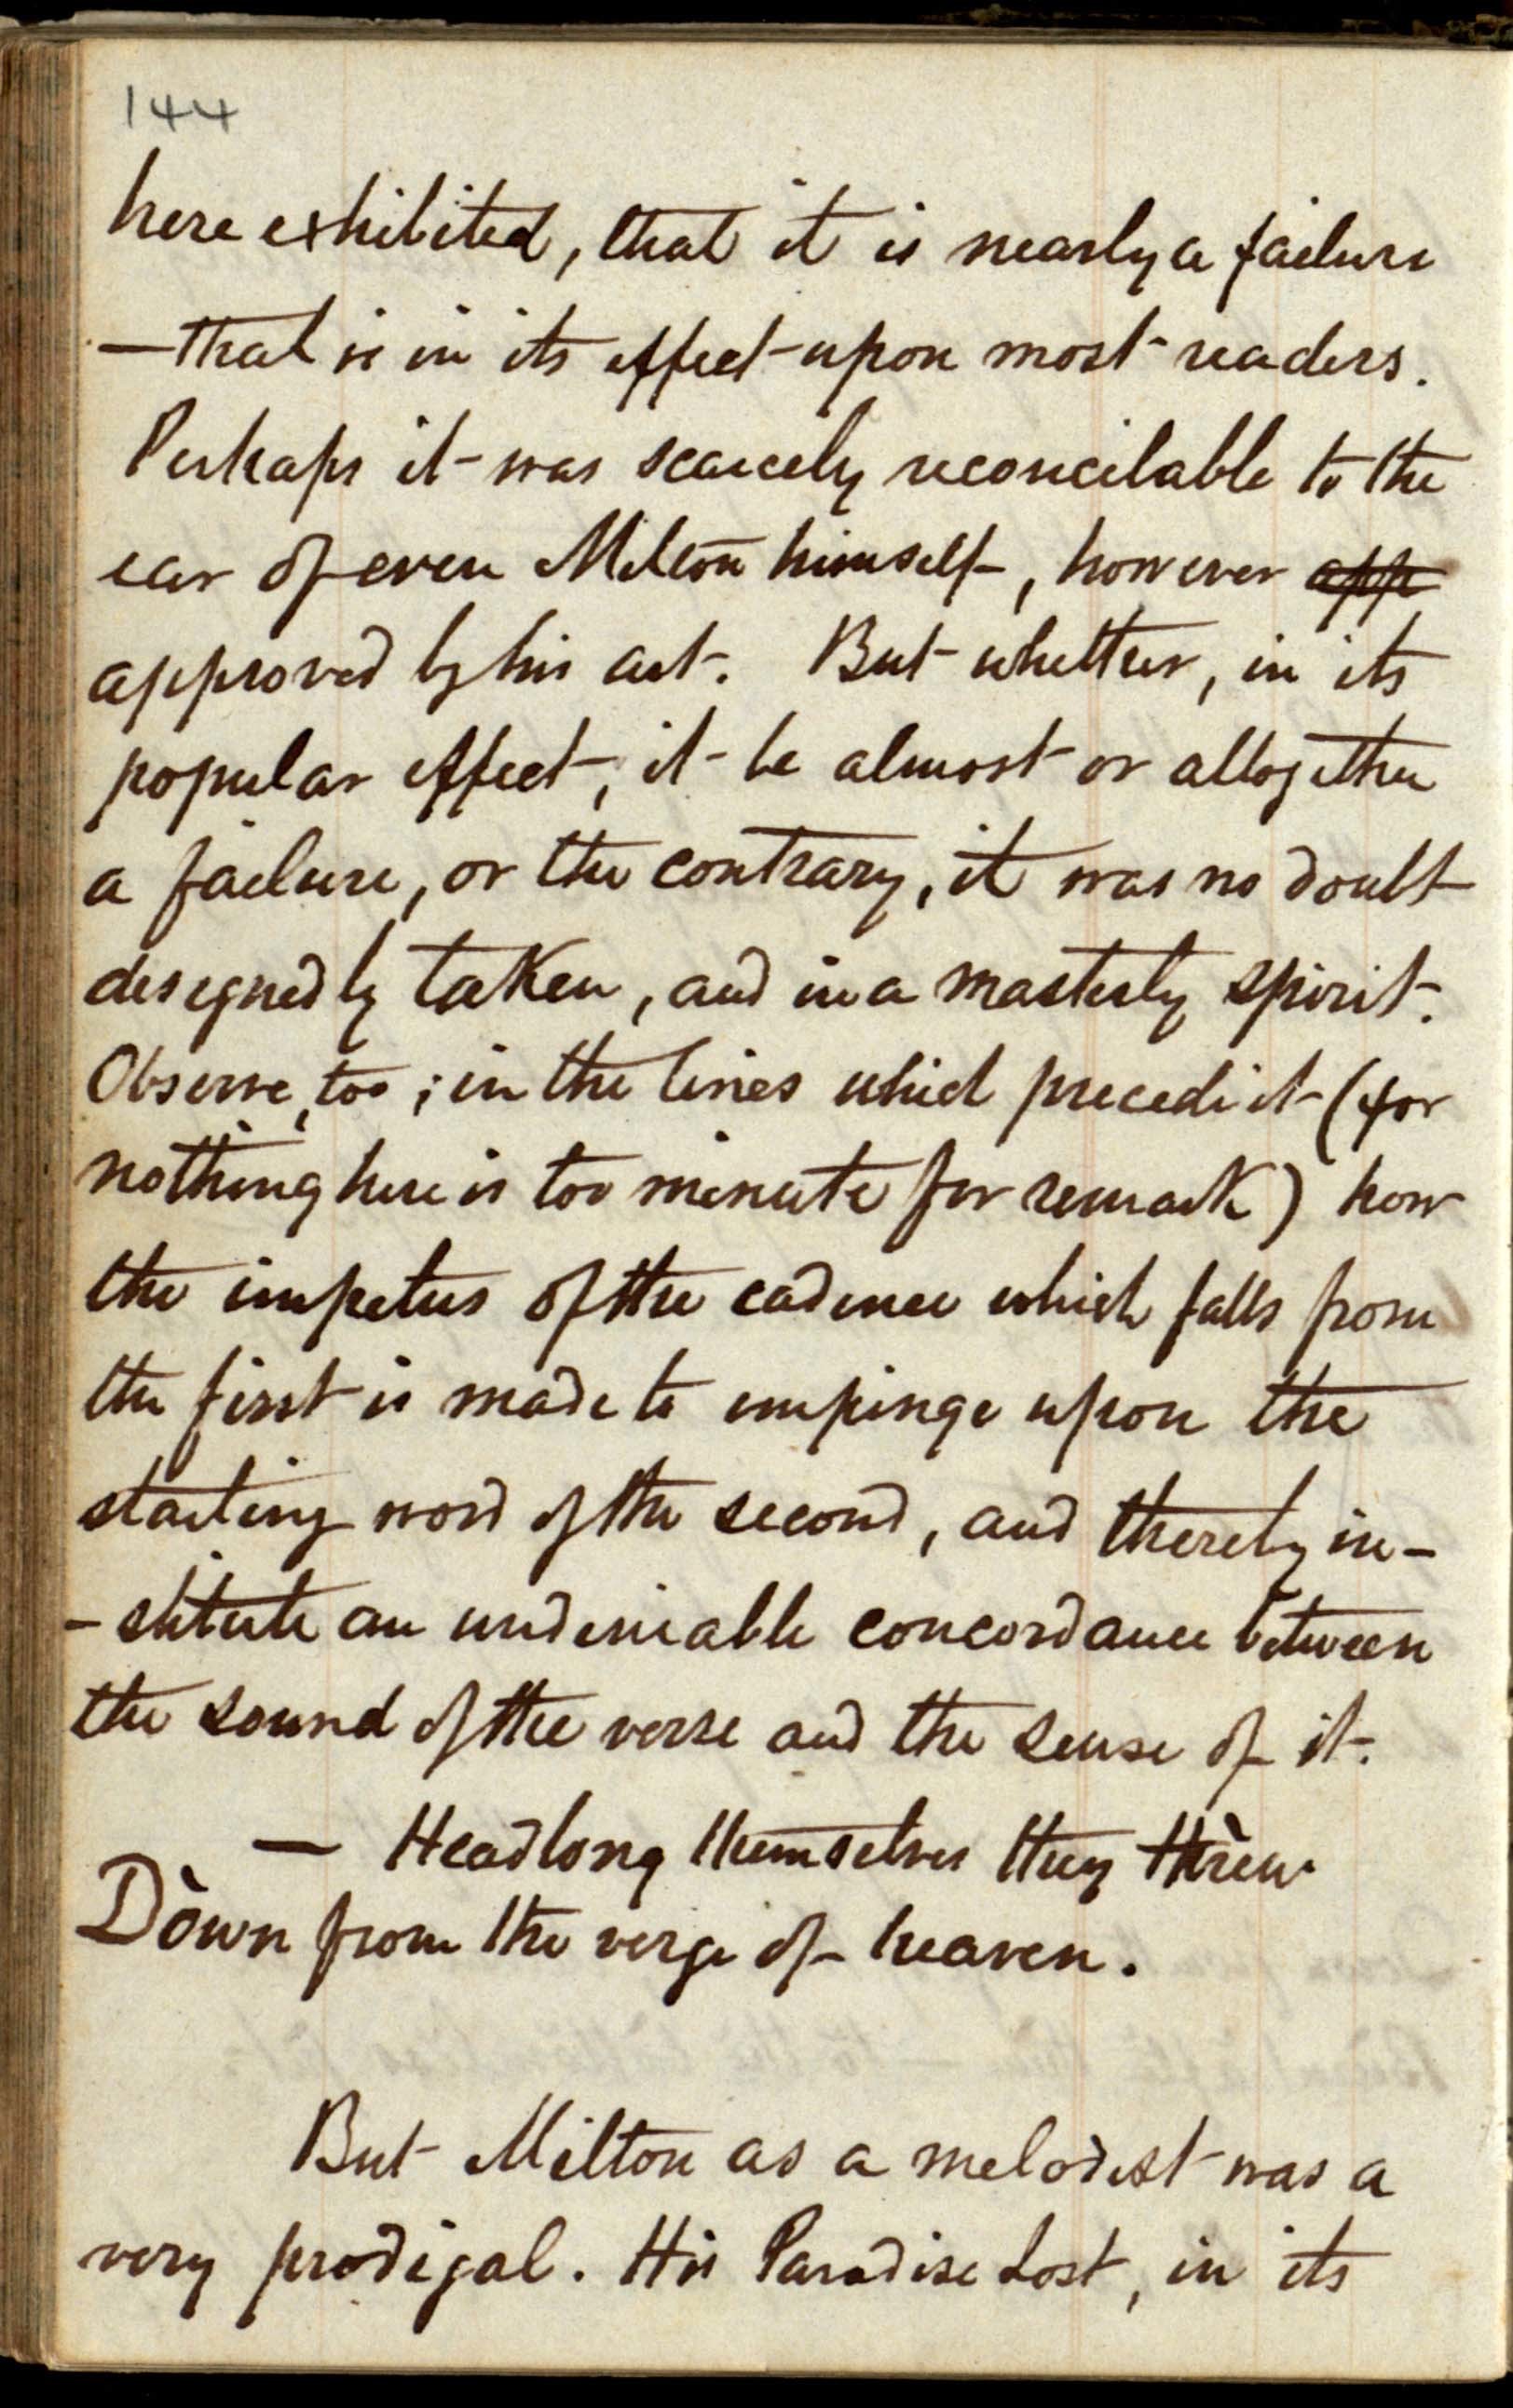 144
here exhibited, that it is nearly a failure
—that is in its effect upon most readers.
Perhaps it was scarcely reconcilable to the
ear of even Milton himself, however app
approved by his art. But whether, in its
popular effect, it be almost or altogether
a failure, or the contrary, it was no doubt
designedly taken, and in a masterly spirit.
Observe, too; in the lines which precede it (for
nothing here is too minute for remark) how
the impetus of the cadence which falls from
the first is made to impinge upon the
starting word of the second, and thereby in-
-stitute an undeniable concordance between
the sound of the verse and the sense of it.
— Headlong themselves they thrèw
Dòwn from the verge of heaven.
But Milton as a melodist was a
very prodigal. His Paradise Lost, in its